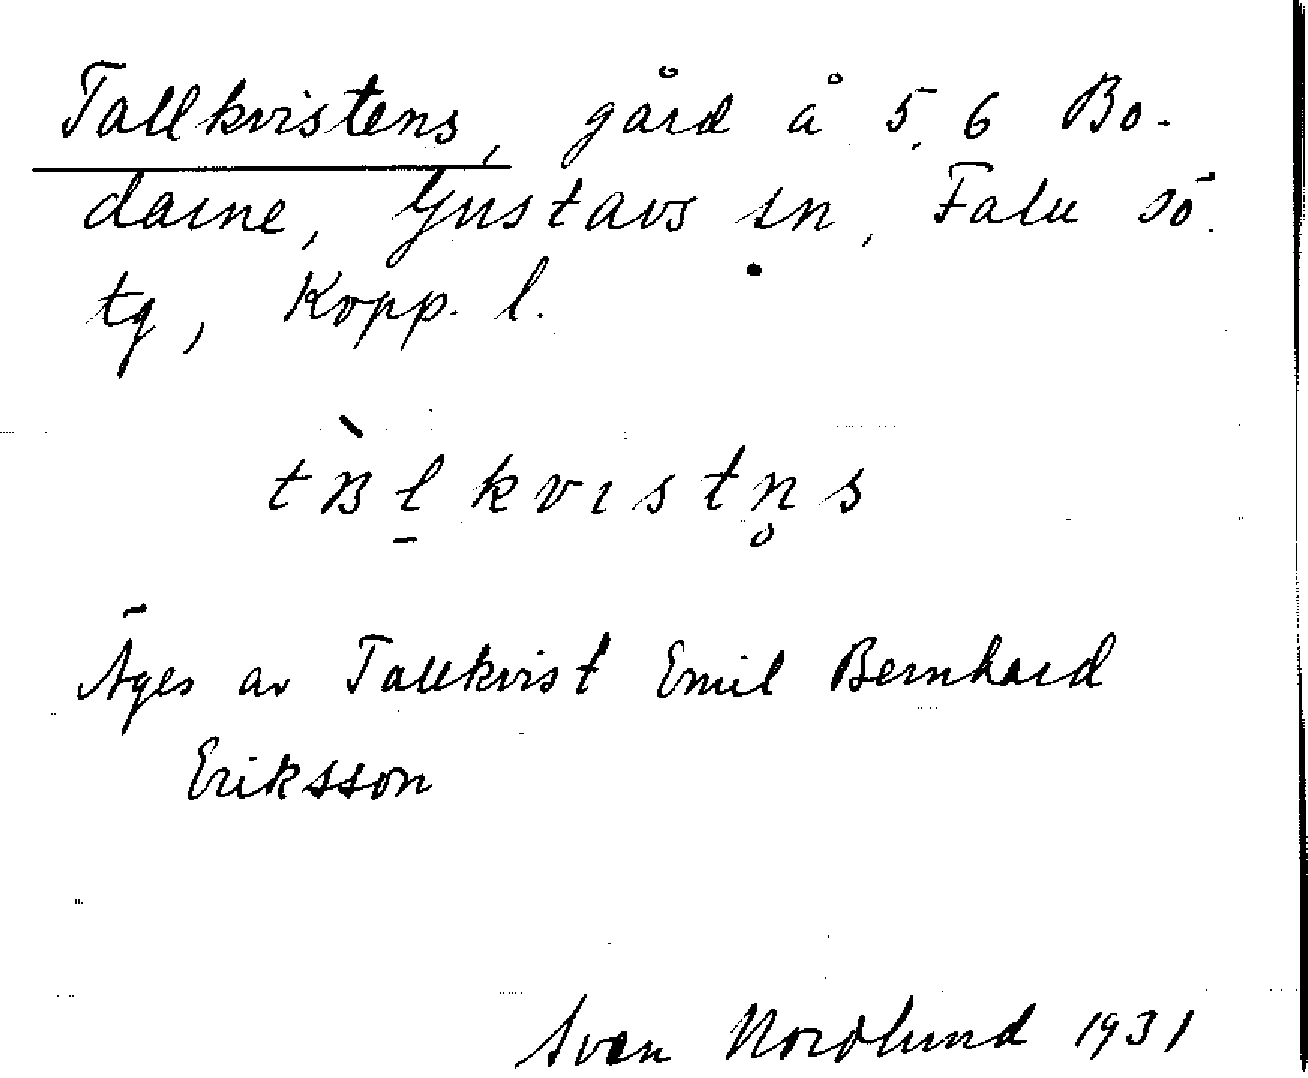 Tallkvistens, gård å 5, 6 Bo-
darne, Gustavs sn, Falu sö.
tg, Kopp. l.
tàl̠kvistn̥s
Äges av Tallkvist Emil Bernhard
Eriksson
Sven Nordlund 1931